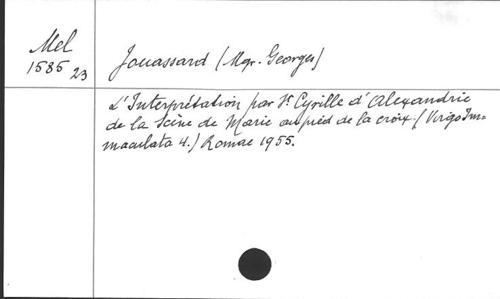 Mel
1585 23
Jouassard (Mgr. Georges)
L'Interprétation par St Cyrille d'Alexandrie
de la Scène de Marie au pied de la croix. (Virgo Im-
maculata 4.) Romae 1955.